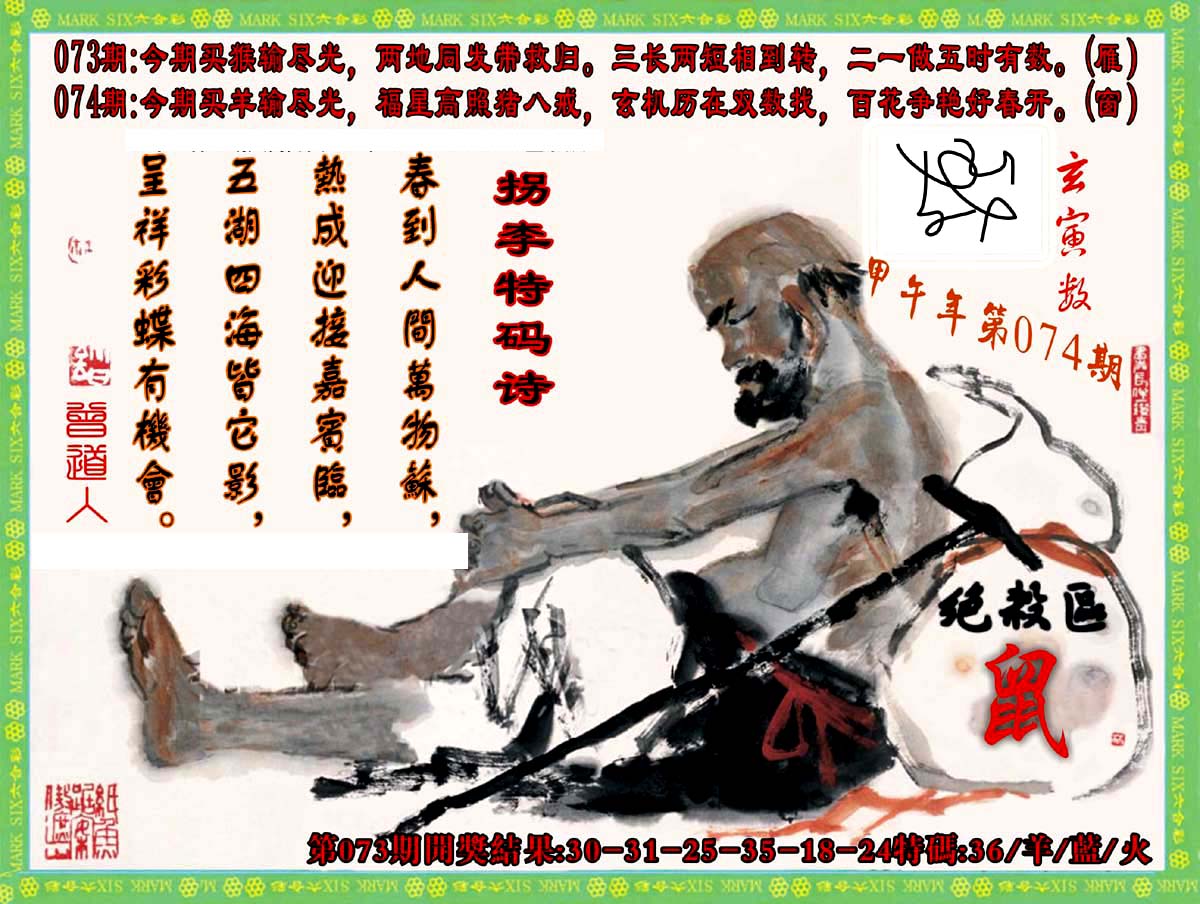 MARK SIX六合彩
073期:今期买猴输尽光，两地同发带救归。三长两短相到转，二一做五时有数。(雁)
074期:今期买羊输尽光，福星高照猪八戒，玄机历在双数找，百花争艳好春开。(窗)
玄寅数
甲午年第074期
拐李特码诗
春到人間萬物蘇，
熱成迎接嘉賓臨，
五湖四海皆它影，
呈祥彩蝶有機會。
曾道人
绝殺區
鼠
第073期開獎結果:30-31-25-35-18-24特碼:36/羊/藍/火